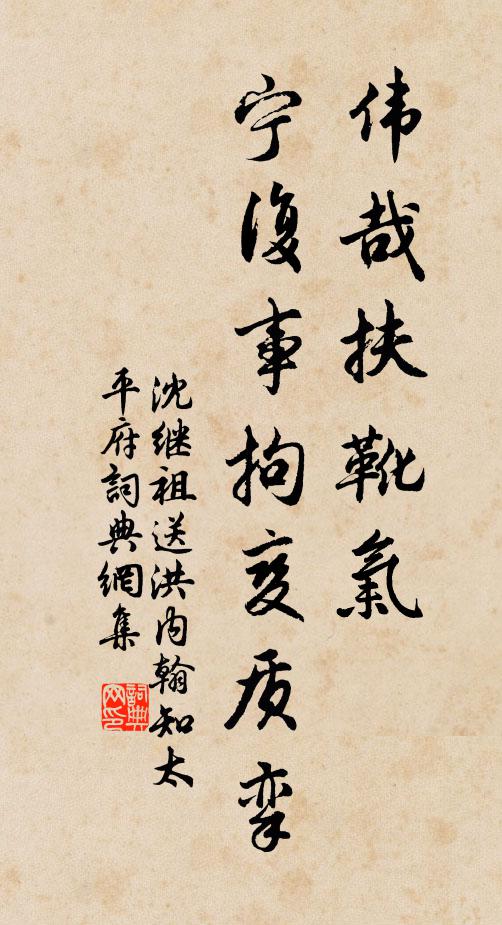 伟哉扶靴氣
宁復事拘变质挛
沈继祖送洪内翰知太
平府詞典網集
詞典网印